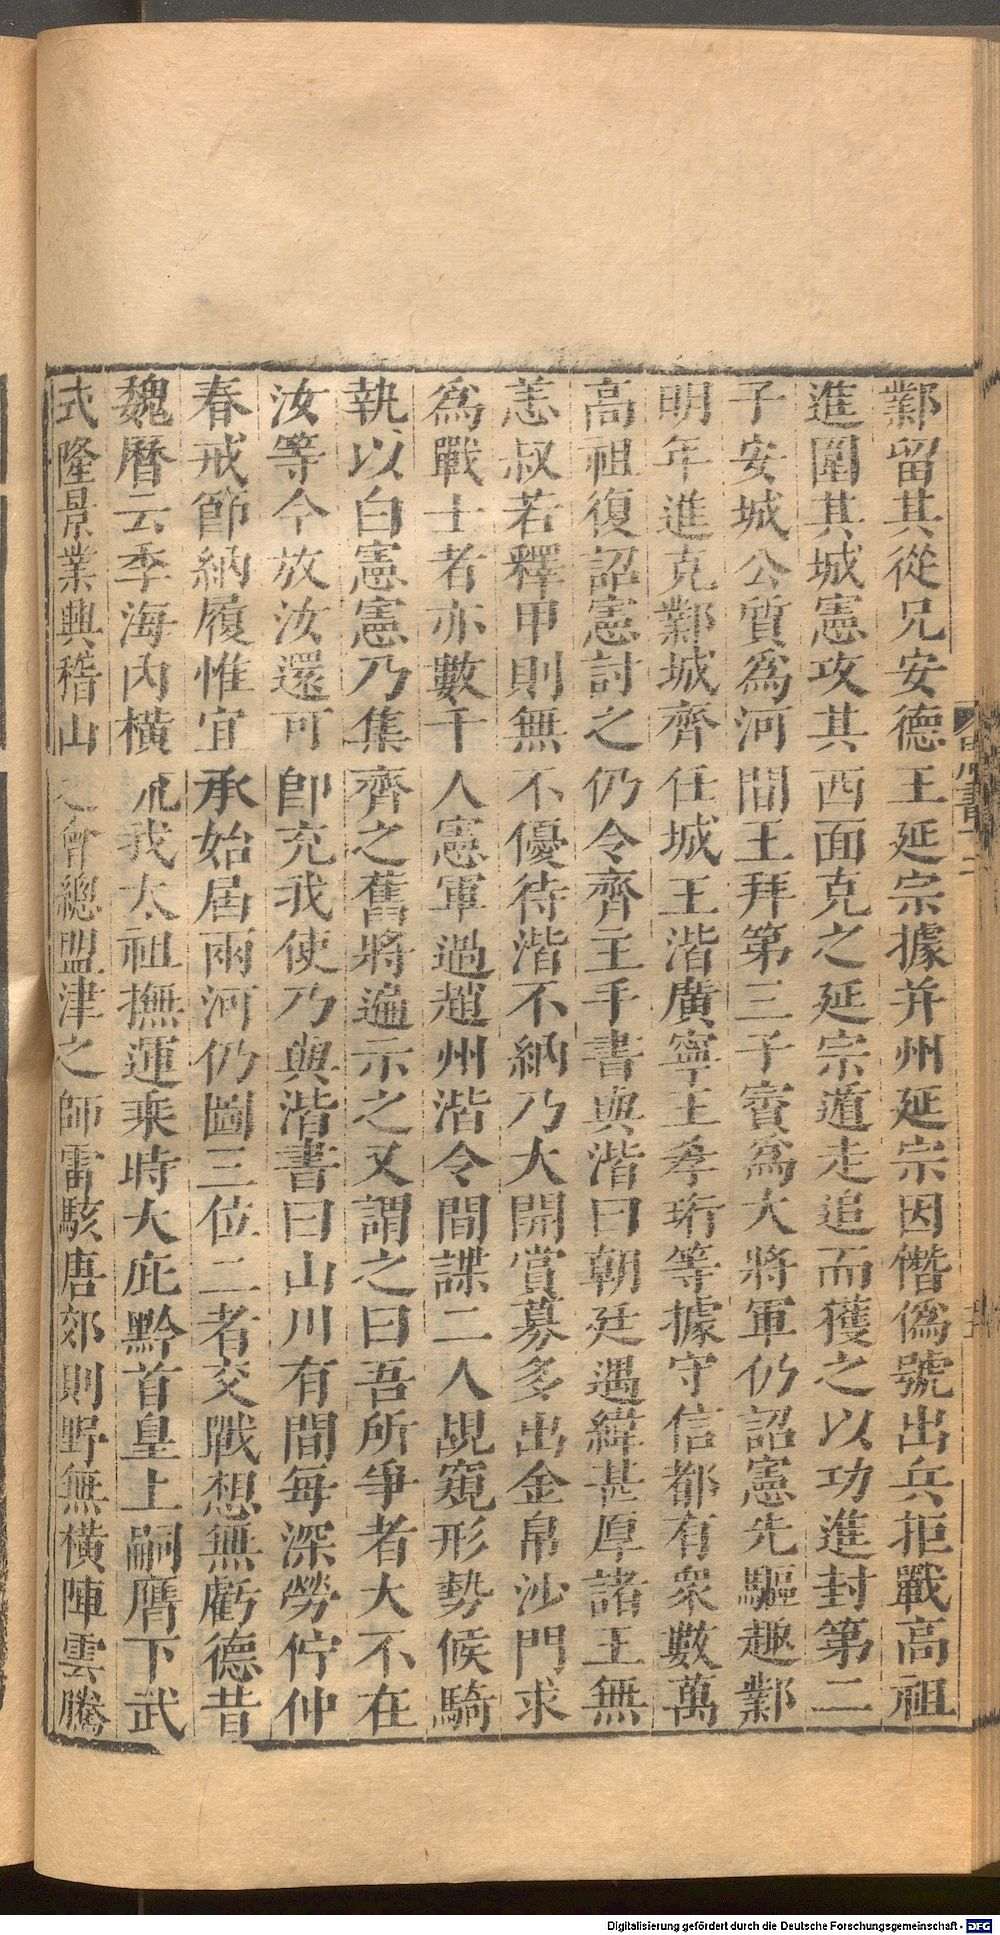 鄴留其從兄安德王延宗據并州延宗因僭偽號出兵拒戰高祖
進圍其城憲攻其西面克之延宗遁走追而獲之以功進封第二
子安城公質為河間王拜第三子賓為大將軍仍詔憲先驅趣鄴
明年進克鄴城齊任城王湝廣寧王孝珩等據守信都有衆數萬
高祖復詔憲討之仍令齊主手書與湝曰朝廷遇緯甚厚諸王無
恙叔若釋甲則無不優待湝不納乃大開賞募多出金帛沙門求
為戰士者亦數千人憲軍過趙州湝令間諜二人覘窺形勢候騎
執以白憲憲乃集齊之舊將遍示之又謂之曰吾所爭者大不在
汝等今放汝還可卽充我使乃與湝書曰山川有間每深勞佇仲
春戒節納履惟宜承始屆兩河仍圖三位二者交戰想無虧德昔
魏曆云季海內橫流我太祖撫運乘時大庇黔首皇上嗣膺下武
式隆景業興稽山之會總盟津之師雷駭唐郊則野無橫陣雲騰
Digitalisierung gefördert durch die Deutsche Forschungsgemeinschaft - DFG